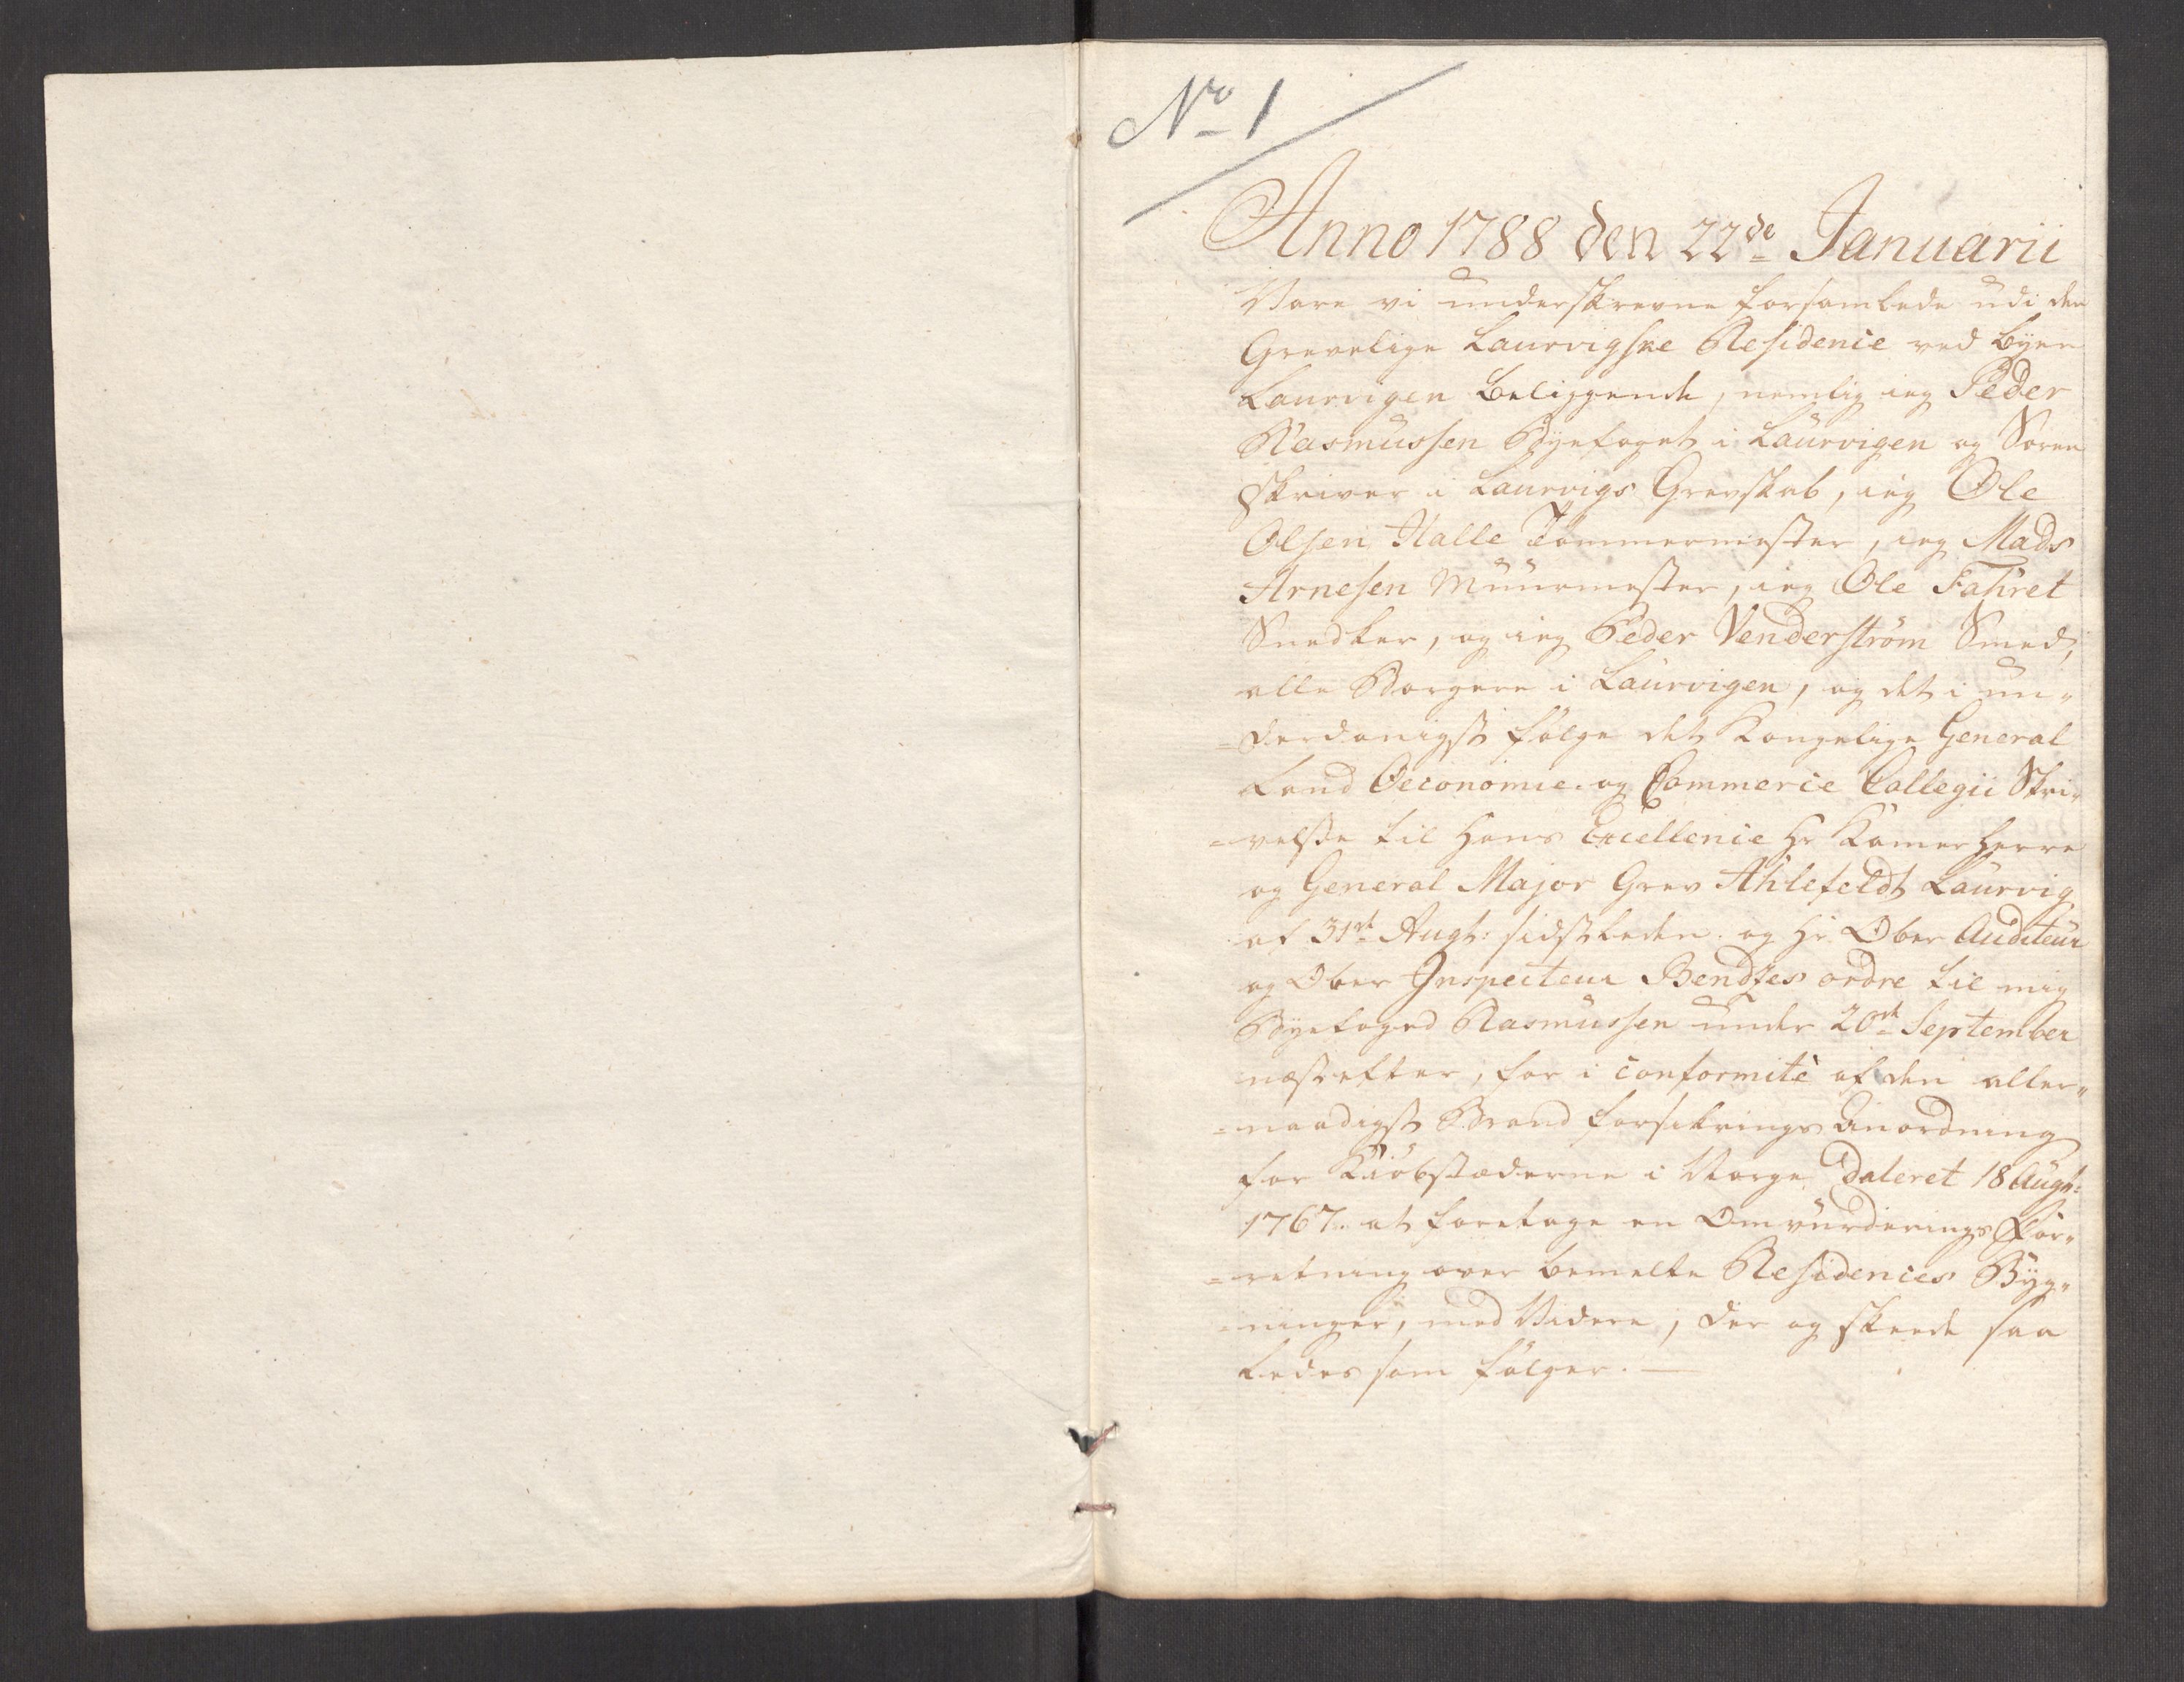 No 1
Anno 1788 den 22de Januarii
Vare vi underskrevne forsamlede udi den
Grevelige Laurvigske Residence ved byen
Laurvigen beliggende, nemlig ieg Peder
Rasmussen Byefoget i Laurvigen og Soren
skriver i Laurvigs Grevskab, ieg Ole
Olsen Halle Tømmermester, ieg Mads
Arnesen Muurmester, ieg Ole Fahret
Snedker, og ieg Peder Venderstrøm Smed,
alle Borgere i Laurvigen, og det i un„
=derdanigst følge det Kongelige General
Land Oeconomie. og Commerce Collegii Skri„
=velsse til Hans Excellence Hr Kamerherre
og General Major Grev Ahlefeldt Laurvig
af 31te Augt: sidstleden. og Hr Ober Auditeur
og Ober Inspecteur Bendzes ordre til mig
Byefoged Rasmussen under 20de September
næstefter, for i conformitè af den aller„
=naadigst Brand forsikrings Anordning
for Kiøbstæderne i Norge dateret 18 Augt:
1767. at foretage en Omvurderings For„
=retning over bemelte Residences Byg„
=ninger, med Videre, der og skeede saa
ledes som følger. —